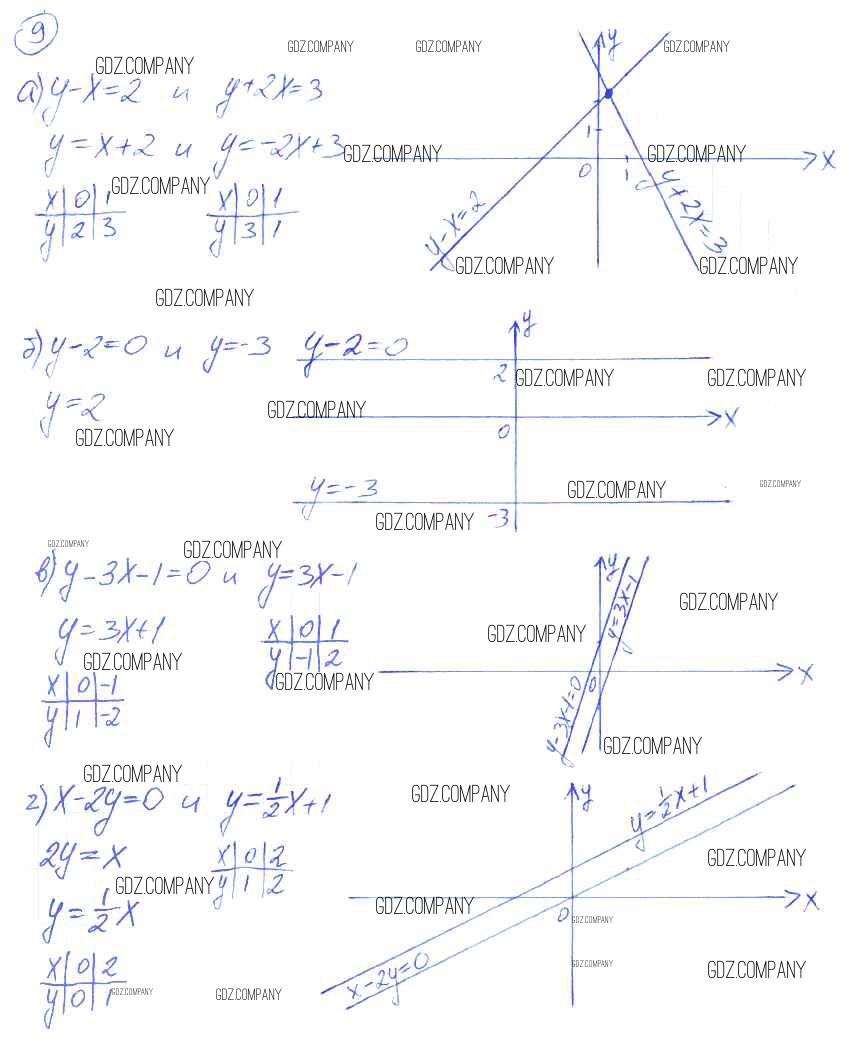 9
GDZ.COMPANY GDZ.COMPANY GDZ.COMPANY GDZ.COMPANY
а) y-x=2 и y+2x=3
y=x+2 и y=-2x+3
GDZ.COMPANY GDZ.COMPANY GDZ.COMPANY
x|0|1 x|0|1
y|2|3 y|3|1
y
1
0 1 x
y-x=2 y+2x=3
GDZ.COMPANY GDZ.COMPANY
GDZ.COMPANY
б) y-2=0 и y=-3 y-2=0
y=2
y
2
GDZ.COMPANY GDZ.COMPANY
GDZ.COMPANY
0 x
GDZ.COMPANY
y=-3
GDZ.COMPANY GDZ.COMPANY
GDZ.COMPANY -3
GDZ.COMPANY GDZ.COMPANY
в) y-3x-1=0 и y=3x-1
y=3x+1
x|0|1
y|-1|2
y
y=3x-1
GDZ.COMPANY
GDZ.COMPANY
GDZ.COMPANY
GDZ.COMPANY
x|0|-1
y|1|-2
0 x
y-3x-1=0
GDZ.COMPANY
GDZ.COMPANY GDZ.COMPANY
г) x-2y=0 и y=1/2x+1
2y=x
x|0|2
y|1|2
y
y=1/2x+1
GDZ.COMPANY
GDZ.COMPANY
y=1/2x
GDZ.COMPANY
0 x
GDZ.COMPANY
x|0|2
y|0|1
x-2y=0
GDZ.COMPANY GDZ.COMPANY
GDZ.COMPANY GDZ.COMPANY